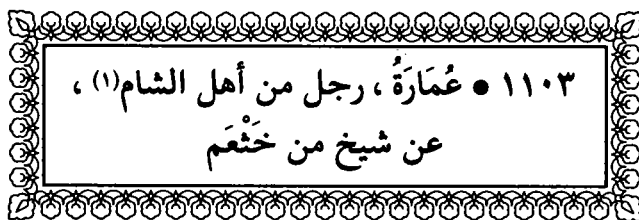 ١١٠٣ ● عُمَارَةُ ، رجل من أهل الشام(١) ،
عن شيخ من خَثْعَم